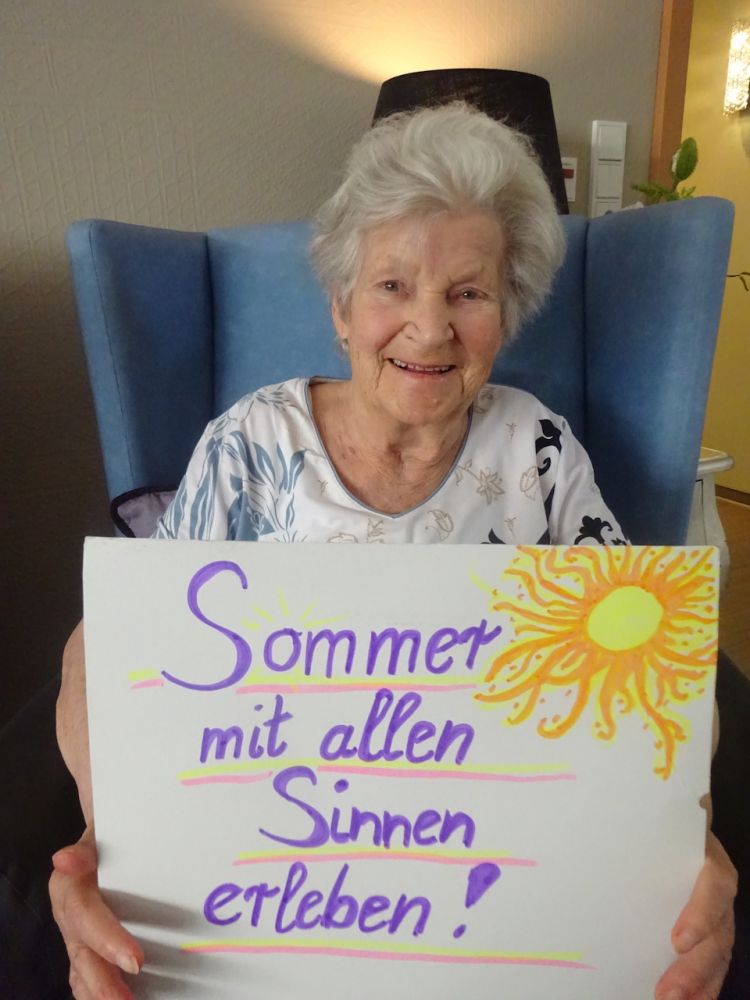 Sommer
mit allen
Sinnen
erleben!